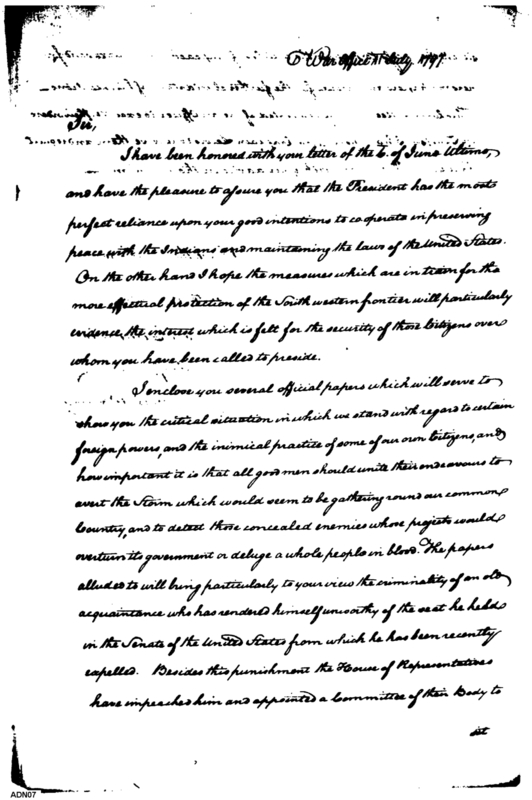 War Office 11 July 1797
Sir,
I have been honored with your letter of the 6. of June Ultimo,
and have the pleasure to assure you that the President has the most
perfect reliance upon your good intentions to cooperate in preserving
peace with the Indians and maintaining the laws of the United States.
On the other hand I hope the measures which are in train for the
more effectual protection of the South western frontier will particularly
evidence the interest which is felt for the security of those Citizens over
whom you have been called to preside.
I enclose you several official papers which will serve to
show you the critical situation in which we stand with regard to certain
foreign powers, and the inimical practice of some of our own Citizens, and
how important it is that all good men should unite their endeavours to
avert the Storm which would seem to be gathering round our common
Country, and to detect those concealed enemies whose projects would
overturn its government or deluge a whole people in blood. The papers
alluded to will bring particularly to your view the criminality of an old
acquaintance who has rendered himself unworthy of the seat he held
in the Senate of the United States from which he has been recently
expelled. Besides this punishment the House of Representatives
have impeached him and appointed a Committee of their Body to
sit
ADN07